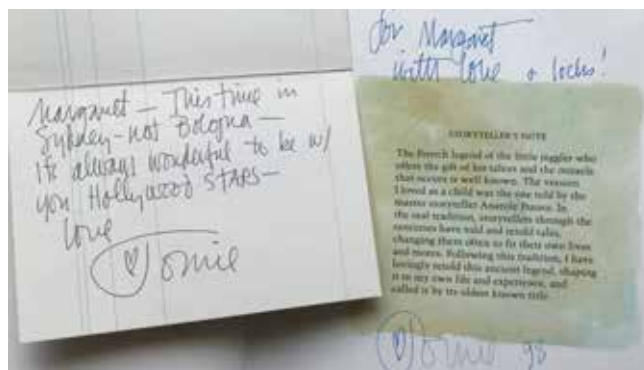 Margaret – This time in
Sydney – not Bologna –
It's always wonderful to be w/
you Hollywood STARS –
love
Tomie
for Margaret
with love + locks!
STORYTELLER'S NOTE
The French legend of the little juggler who
offers the gift of his talent and the miracle
that occurs is well known. The version
I loved as a child was the one told by the
master storyteller Anatole France. In
the oral tradition, storytellers through the
centuries have told and retold tales,
changing them often to fit their own lives
and mores. Following this tradition, I have
lovingly retold this ancient legend, shaping
it to my own life and experience, and
called it by its oldest known title.
Tomie 98